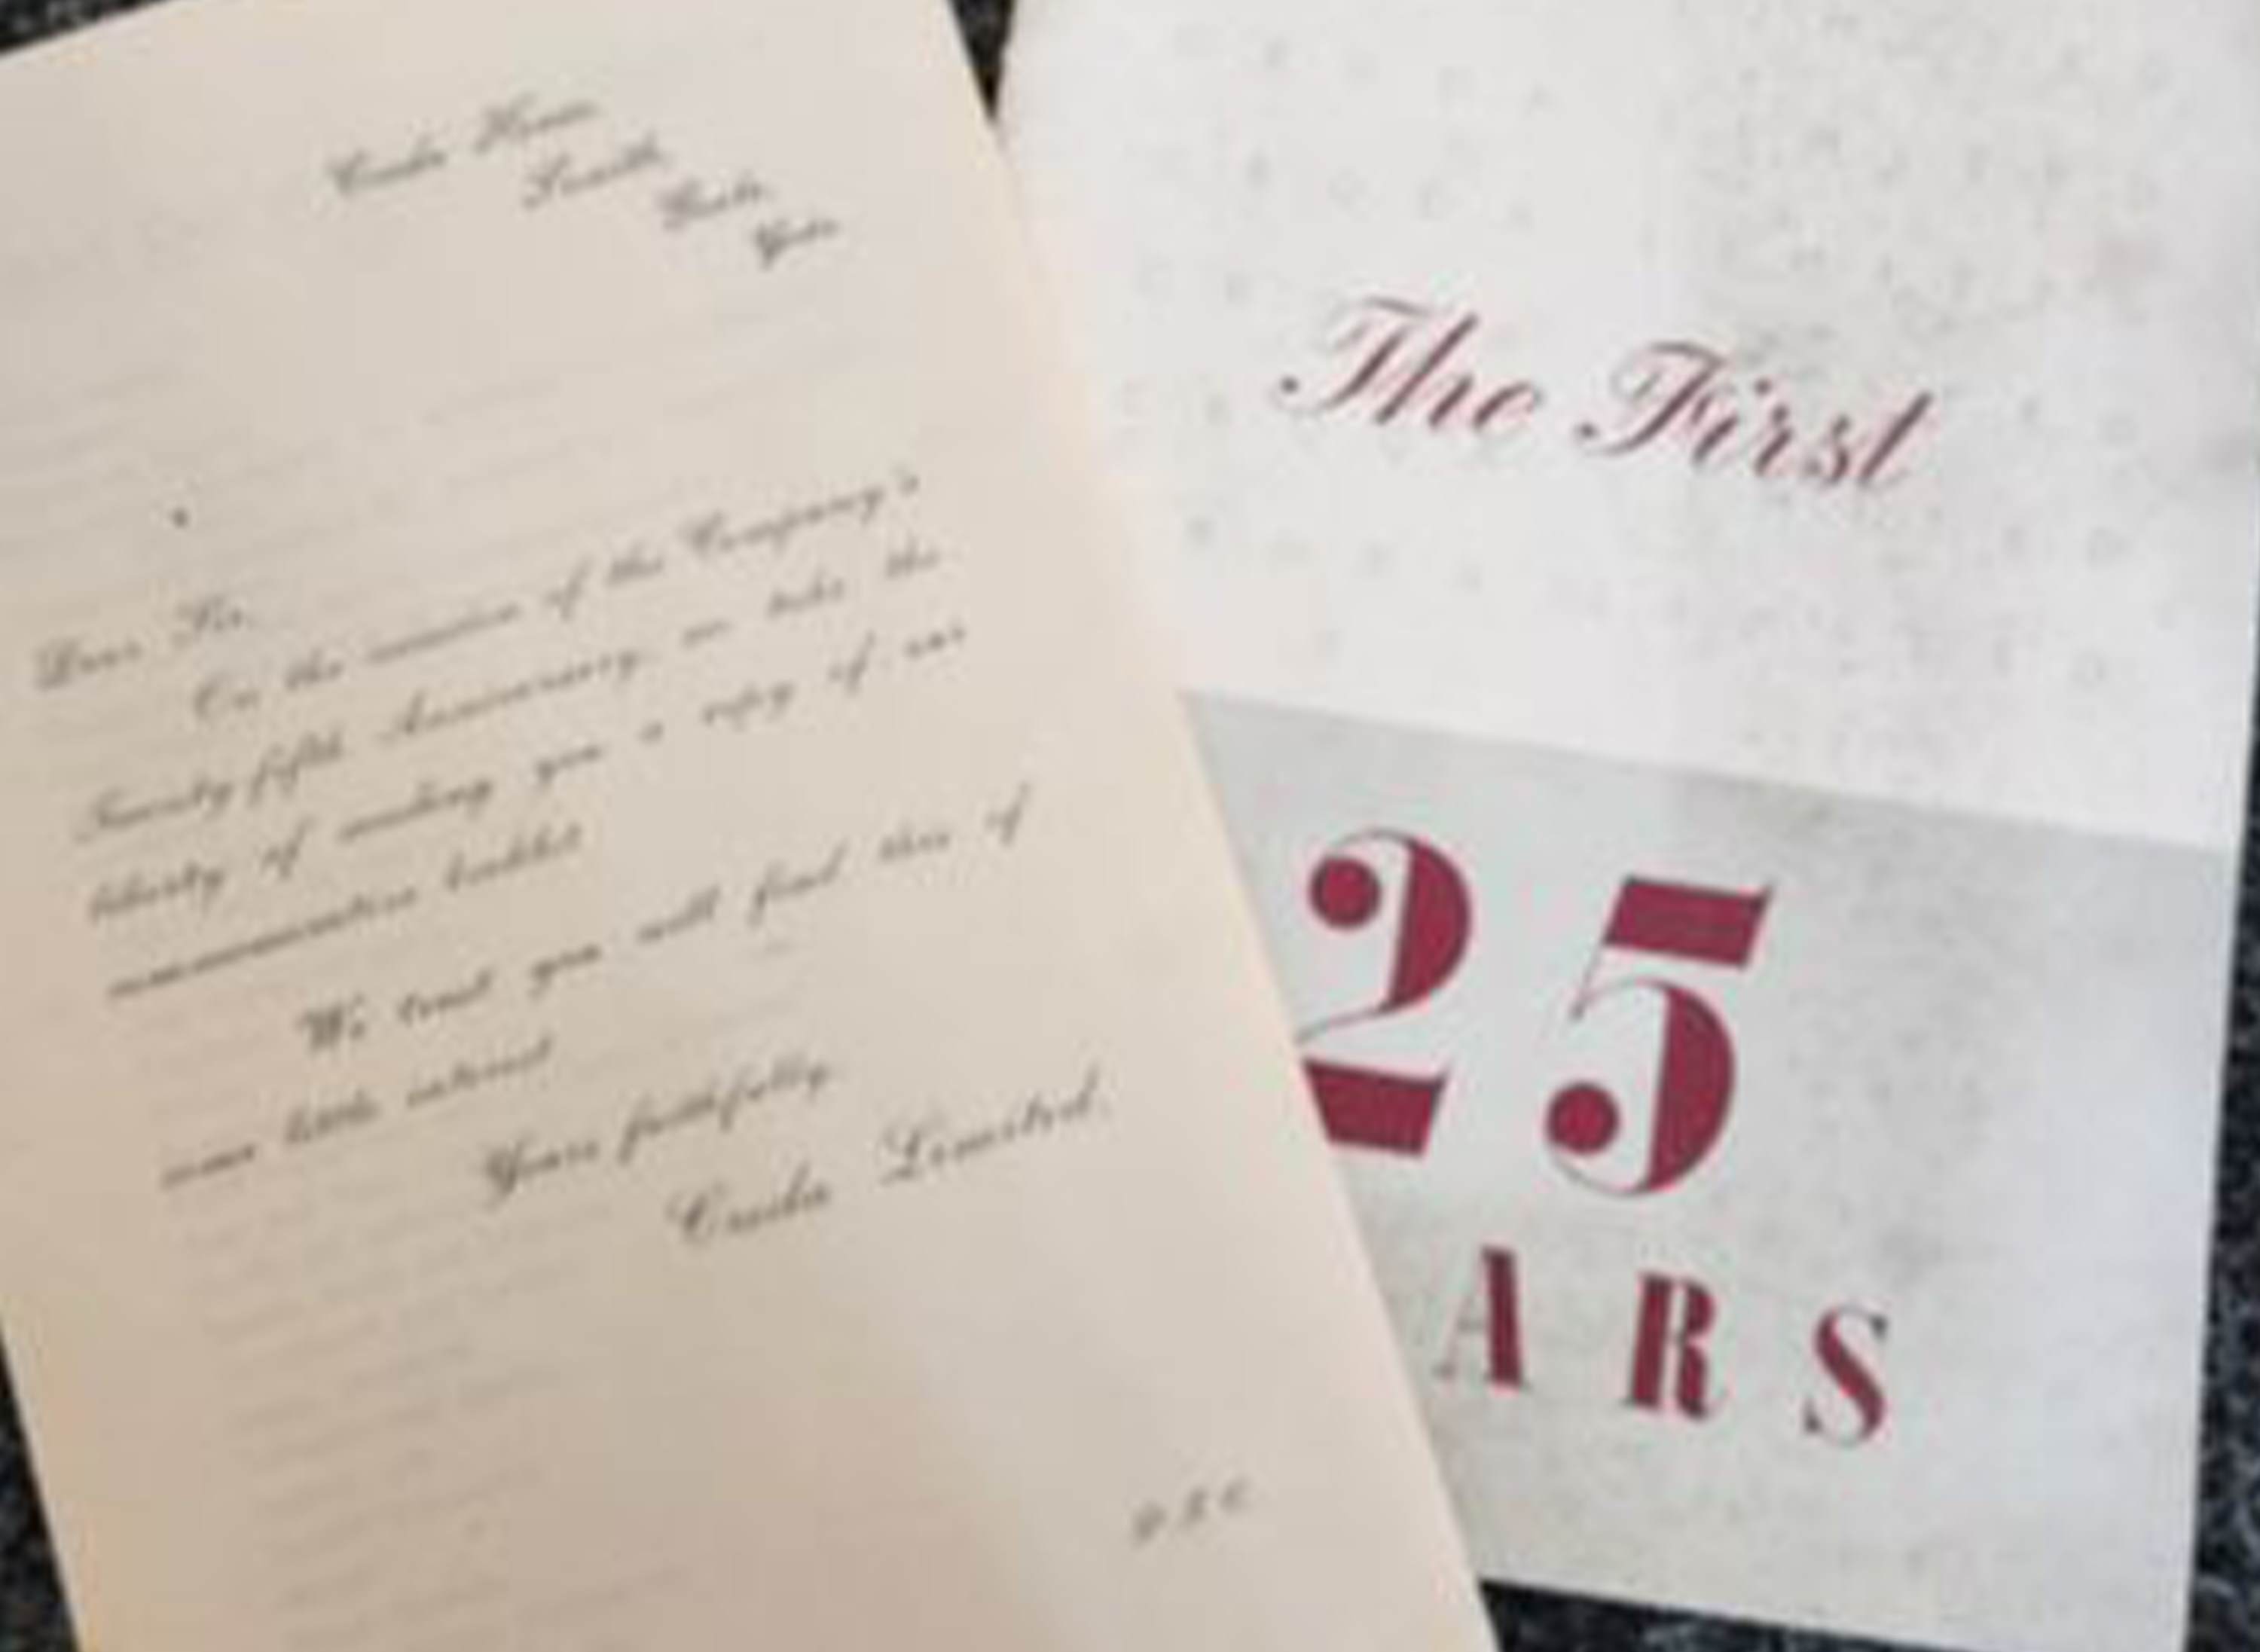 Croda House,
Snaith,
Goole,
Yorks.
Dear Sir,
On the occasion of the Company's
Twenty fifth Anniversary, we take the
liberty of sending you a copy of our
commemorative booklet
We trust you will find this of
some little interest
Yours faithfully,
Croda Limited.
The First
25
ARS